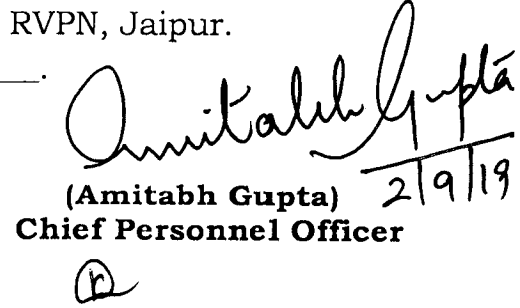 RVPN, Jaipur.
Amitabh Gupta
2/9/19
(Amitabh Gupta)
Chief Personnel Officer